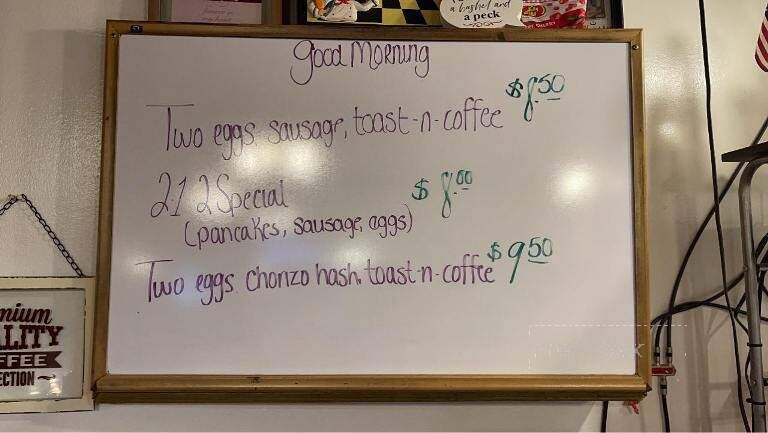 a bushel and
a peck
Good Morning
Two eggs sausage, toast-n-coffee $8.50
2.1.2 Special $8.00
(pancakes, sausage, eggs)
Two eggs chorizo hash, toast-n-coffee $9.50
mium
LITY
FFEE
ECTION